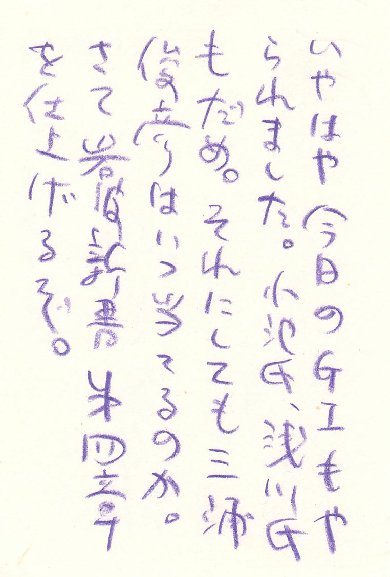 いやはや今日のGIもや
られました。小池氏、浅川氏
もだめ。それにしても三
はいつ当てるのか。
さて岩波新書 第四章
を仕上げるぞ。